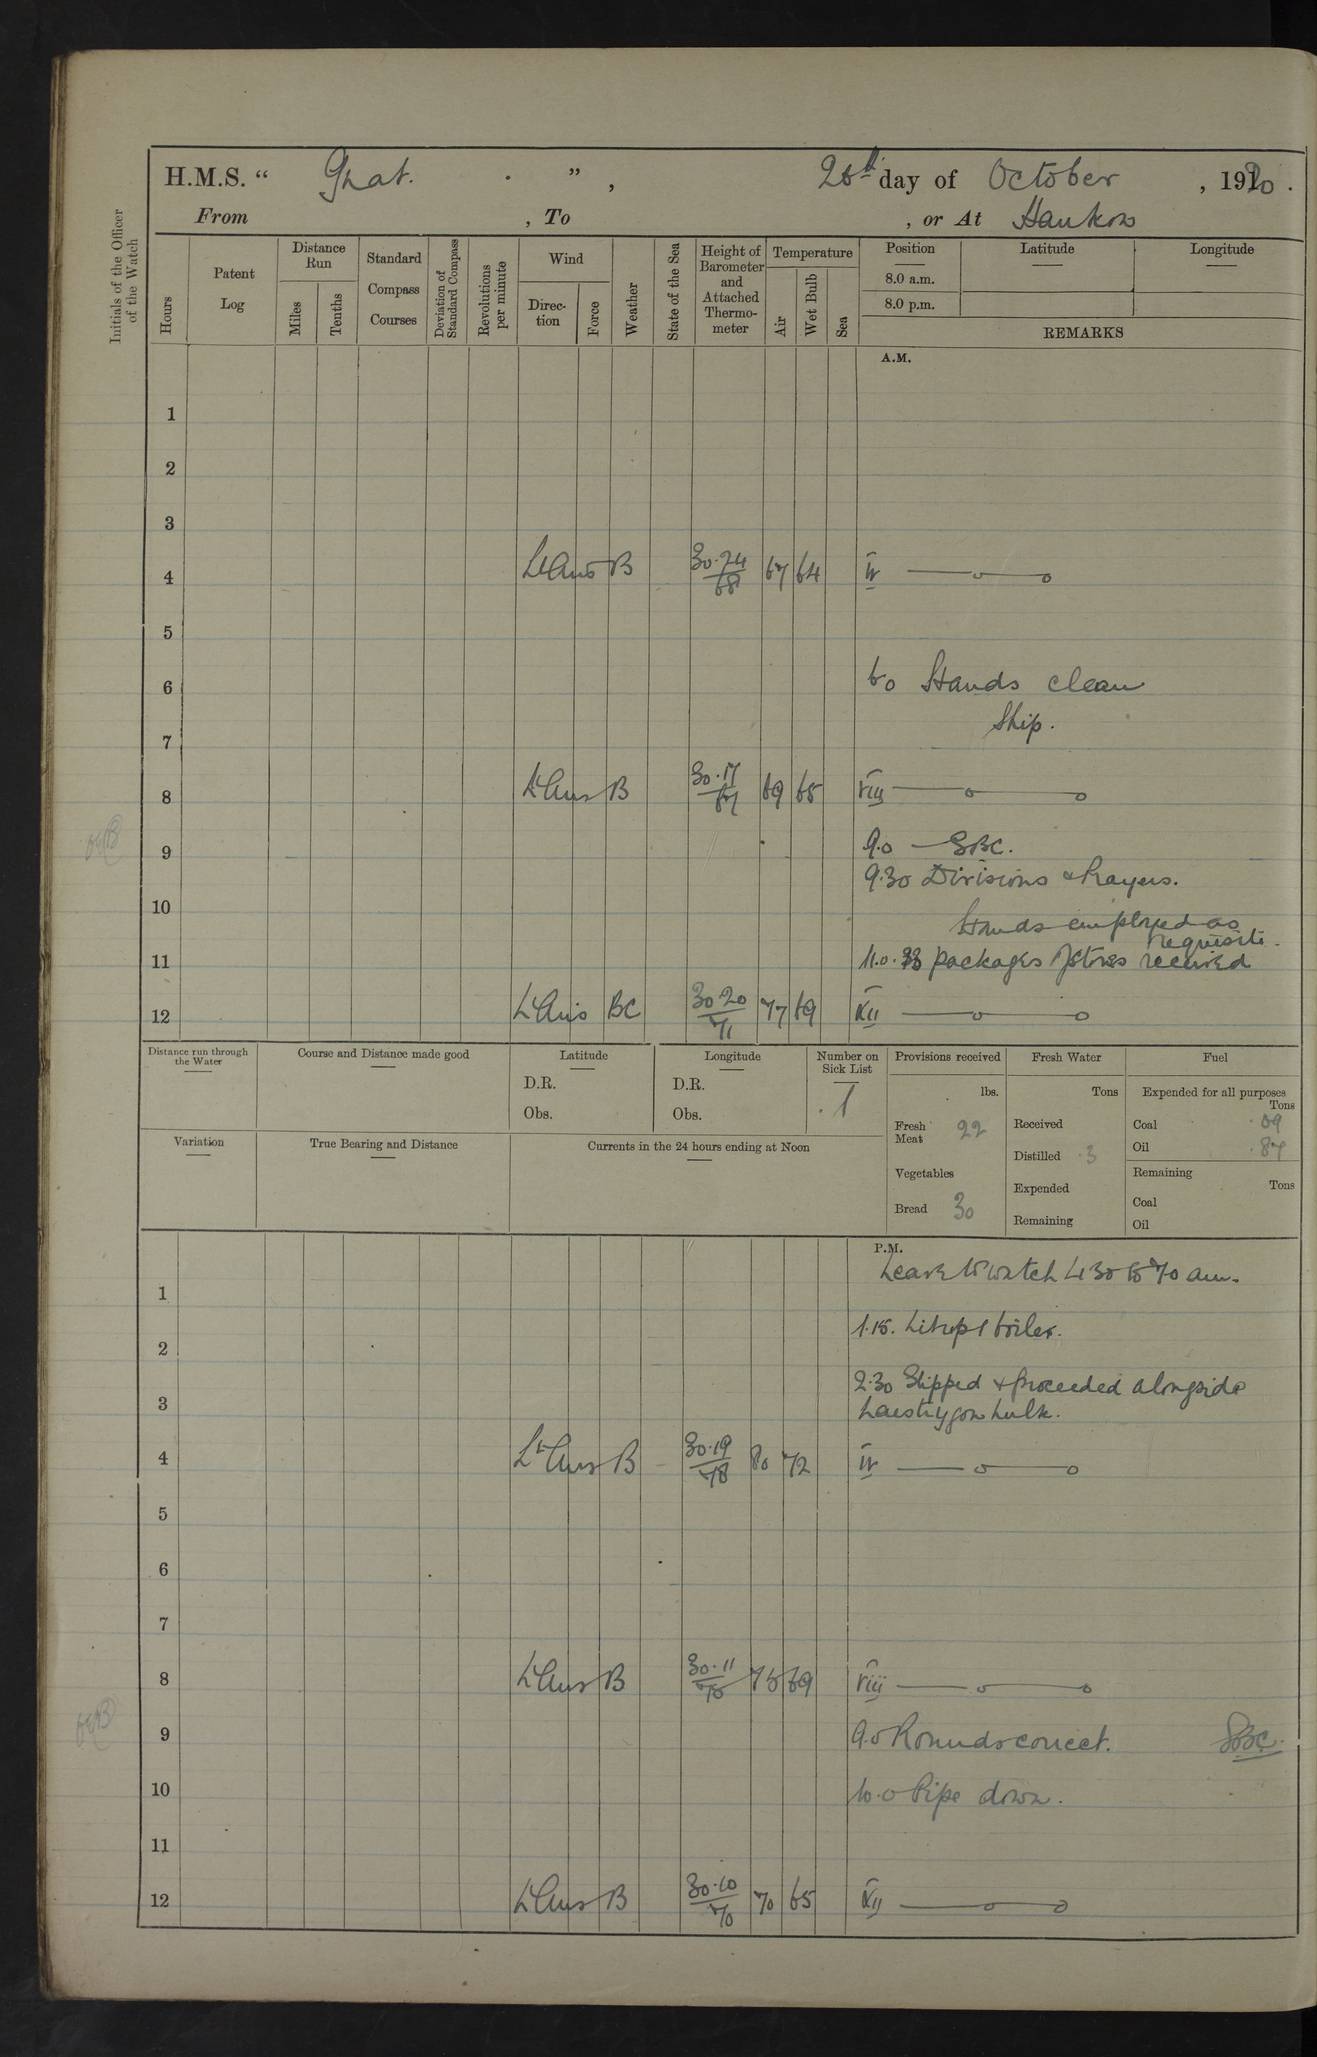 H.M.S. “ Gnat. ” , 26th day of October , 1920 .
From , To , or At Hankow
Initials of the Officer of the Watch
Hours
Patent Log
Distance Run
Miles
Tenths
Standard Compass Courses
Deviation of Standard Compass
Revolutions per minute
Wind
Direction
Force
Weather
State of the Sea
Height of Barometer and Attached Thermometer
Temperature
Air
Wet Bulb
Sea
Position Latitude Longitude
8.0 a.m.
8.0 p.m.
REMARKS
A.M.
1
2
3
4 Lt Airs B 30.24/68 67 64 IV
5
6 6.0 Hands clean
Ship.
7
8 Lt Airs B 30.17/67 69 65 VIII
9 9.0 SBC.
9.30 Divisions & Prayers.
10 Hands employed as
requisite.
11 11.0. 33 packages of stores received
12 Lt Airs BC 30.20/71 77 69 XII
Distance run through the Water
Course and Distance made good
Latitude
D.R.
Obs.
Longitude
D.R.
Obs.
Number on Sick List
1
Provisions received
lbs.
Fresh Meat 22
Vegetables
Bread 30
Fresh Water
Tons
Received
Distilled .3
Expended
Remaining
Fuel
Expended for all purposes
Tons
Coal .09
Oil .87
Remaining
Tons
Coal
Oil
Variation
True Bearing and Distance
Currents in the 24 hours ending at Noon
P.M.
Leave to watch 4 30 to 7 0 am.
1
1.15. Lit up 1 boiler.
2
2.30 Slipped & proceeded alongside
3 Laestrygon hulk.
4 Lt Airs B 30.19/78 80 72 IV
5
6
7
8 Lt Airs B 30.11/75 75 69 VIII
9 9.0 Rounds correct. SBC.
10 10.0 Pipe down.
11
12 Lt Airs B 30.10/70 70 65 XII